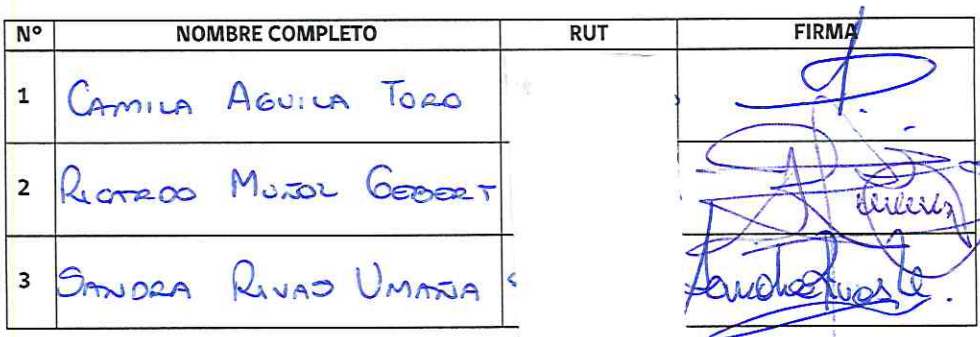 Nº NOMBRE COMPLETO RUT FIRMA
1 CAMILA AGUILA TORO
2 RICARDO MUÑOZ GEBERT
3 SANDRA RIVAS UMAÑA